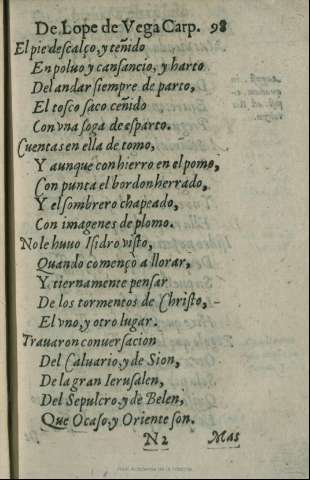 De Lope de Vega Carp. 98
El pie descalço, y teñido
En poluo y cansancio, y harto
Del andar siempre de parto,
El tosco saco ceñido
Con vna soga de esparto.
Cuentas en ella de tomo,
Y aunque con hierro en el pomo,
Con punta el bordon herrado,
Y el sombrero chapeado,
Con imagenes de plomo.
No le huuo Isidro visto,
Quando començò a llorar,
Y tiernamente pensar
De los tormentos de Christo,
El vno, y otro lugar.
Trauaron conuersacion
Del Caluario, y de Sion,
De la gran Ierusalen,
Del Sepulcro, y de Belen,
Que Ocaso, y Oriente son.
N 2 Mas